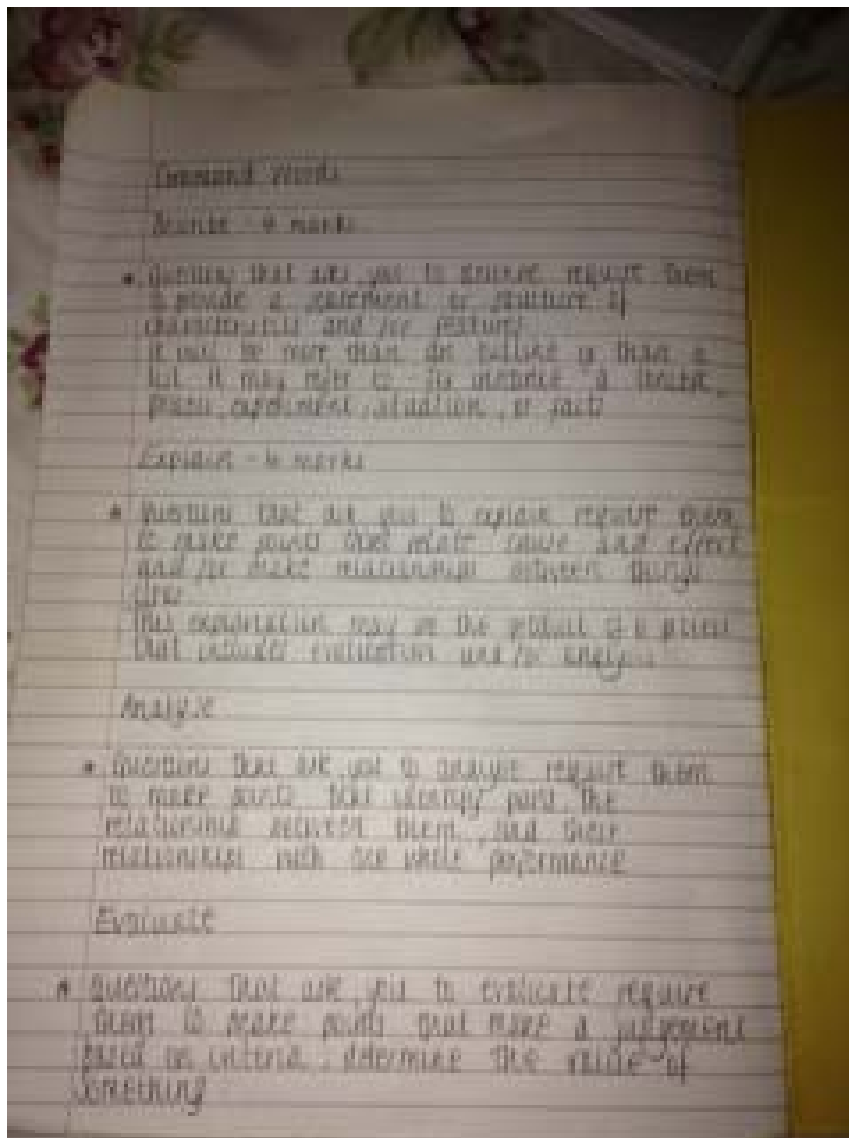 Command Words
Describe - 4 marks
* Questions that ask you to describe require them
to provide a statement or structure of
characteristics and/or features
It must be more than an outline or than a
list. It may refer to for instance a
process, experiment, situation, or facts
Explain - 6 marks
* Questions that ask you to explain require them
to make points that relate cause and effect
and/or make relationships between things
clear
This explanation may be the product of a process
that includes evaluation and/or analysis
Analyse
* Questions that ask you to analyse require them
to make points that identify parts, the
relationship between them, and their
relationships with the whole performance
Evaluate
* Questions that ask you to evaluate require
them to make points that make a judgement
based on criteria, determine the value of
something